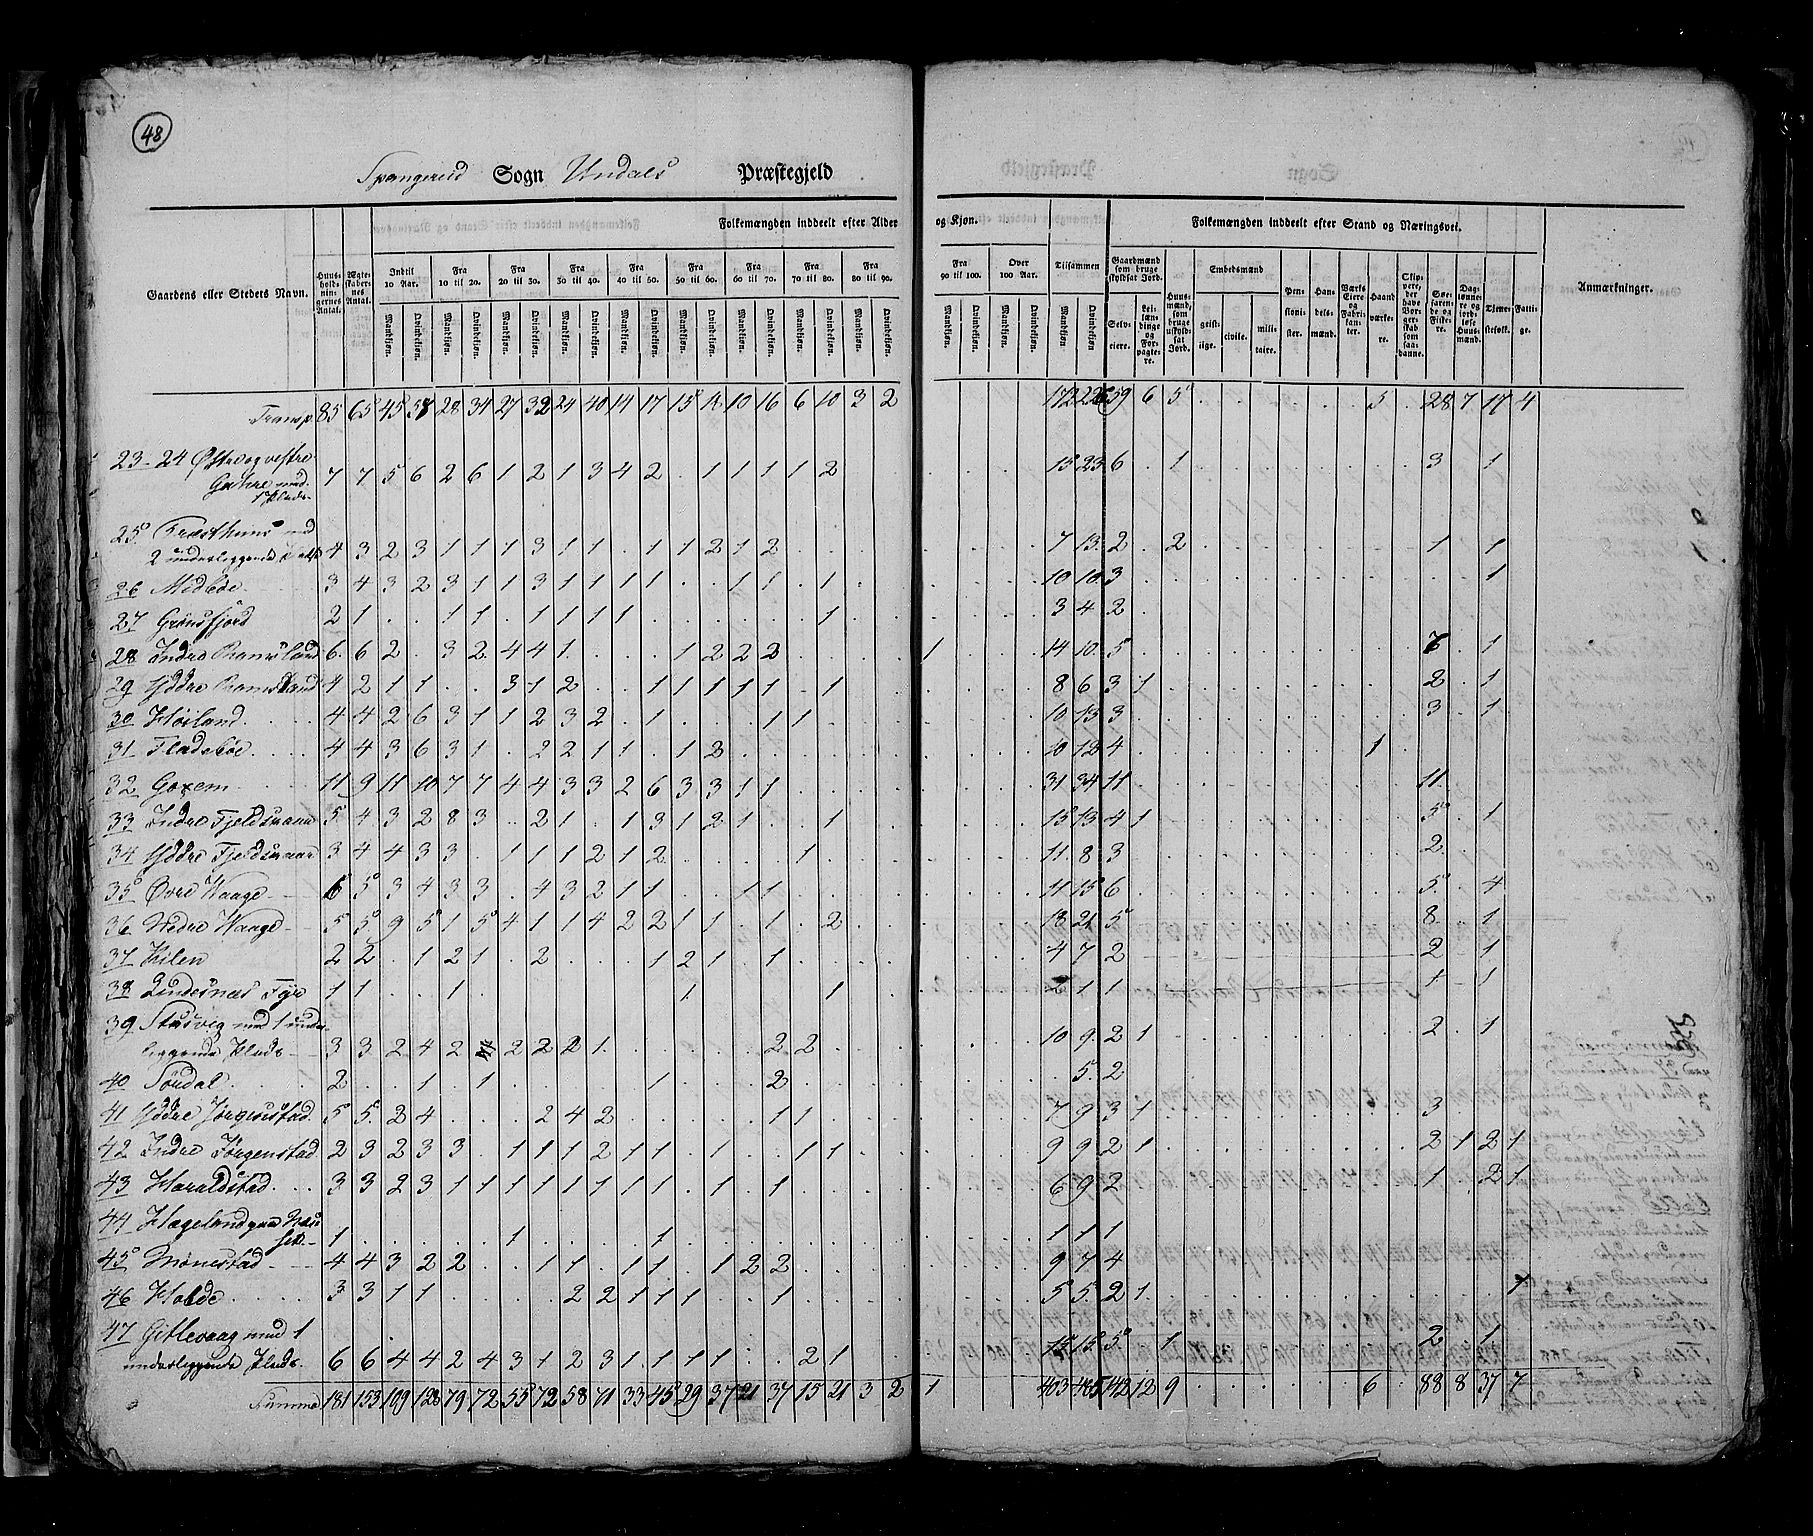 48
Spangereid Sogn Undals Præstegjeld
Gaardens eller Stedets Navn.
Huusholdningernes Antal.
Ægteskabernes Antal.
Folkemængden inddeelt efter Alder og Kjøn.
Indtil 10 Aar. Fra 10 til 20. Fra 20 til 30. Fra 30 til 40. Fra 40 til 50. Fra 50 til 60. Fra 60 til 70. Fra 70 til 80. Fra 80 til 90. Fra 90 til 100. Over 100 Aar. Tilsammen
Mandkjøn. Qvindekjøn.
Folkemængden inddeelt efter Stand og Næringsvei.
Gaardmænd som bruge skyldsat Jord.
Selveiere.
Leilændinge og Forpagtere.
Huusmænd, som bruge uskyldsat Jord.
Embedsmænd
geistlige. civile. militaire.
Pensionister.
Handelsmænd.
Værks Eiere og Fabrikanter.
Haandværkere.
Skippere, der have Borgerskab som saadanne.
Søefarende og Fiskere.
Daglønnere og jordløse Huusmænd.
Tjenestefolk.
Fattige.
Anmærkninger.
Transp 85 65 45 38 28 34 27 32 24 40 14 17 15 10 16 6 10 3 2 172 59 6 5 5 28 7 17 4
23-24 Østre og vestre
med
1 Plads 7 7 5 6 2 6 1 2 1 3 4 2 1 1 1 1 2 15 23 6 1 3 1
25 med
2 underliggende 4 3 2 3 1 1 1 3 1 1 1 1 2 1 2 7 13 2 2 1 1
26 Midbøe 3 4 3 2 3 1 1 3 1 1 1 1 1 1 1 10 10 3 1
27 Grønsfjord 2 1 1 1 1 1 1 1 1 3 4 2
28 Indre Ramsland 6 6 2 3 2 4 4 1 1 2 2 2 1 14 10 5 7 1
29 Yddre Ramsland 4 2 1 1 3 1 2 1 1 1 1 1 1 8 6 3 1 2 1
30 Høiland 4 4 2 6 3 1 1 2 3 2 1 1 1 10 13 3 3 1
31 Fladebøe 4 4 3 6 3 1 2 2 1 1 1 2 10 12 4 1
32 Goxem 11 9 11 10 7 7 4 4 3 3 2 6 3 3 1 1 31 34 11 11
33 Indre Fjeldsmaae 5 4 3 2 8 3 2 1 1 3 1 2 1 1 15 13 4 1 5 1
34 Yddre Fjeldsmaae 3 4 4 3 3 1 1 1 2 1 2 1 11 8 3 2
35 Øvre Waage 6 5 3 4 3 3 4 3 2 1 1 1 1 11 15 6 5 4
36 Nedre Waage 5 5 9 5 1 5 4 1 1 4 2 2 1 1 1 2 18 21 5 8 1
37 2 2 1 2 1 2 1 2 1 1 4 7 2 2 1
38 Lindesnæs Fyr 1 1 1 1 1 2 1 1 1 1
39 Stusvig med 1 under-
liggende Plads 3 3 2 4 2 2 2 2 1 2 2 10 9 2 1 2 1
40 Sørdal 2 1 1 1 2 5 2
41 Yddre Jørgenstad 5 5 2 4 2 4 2 1 1 7 9 3 1 3
42 Indre Jørgenstad 2 3 2 3 3 1 1 1 2 1 1 1 1 1 9 9 2 1 2 1 2 1
43 Haraldstad 3 3 2 3 1 1 1 1 1 1 1 1 1 1 6 9 2 1 2 1
44 Hageland
1 1 1 1 1 1
45 Mønnestad 4 4 3 2 2 1 1 1 1 1 2 2 9 7 4
46 Holde 3 3 1 1 2 2 1 1 1 1 5 5 2 1 1
47 Gitlevaag med 1
underliggende Plads 6 6 4 4 2 4 3 1 2 3 1 1 1 1 2 1 15 15 5 1 2 1
Summa 181 153 109 128 79 72 55 72 58 71 33 45 29 37 21 37 15 21 3 2 1 403 485 142 12 9 6 88 8 37 7